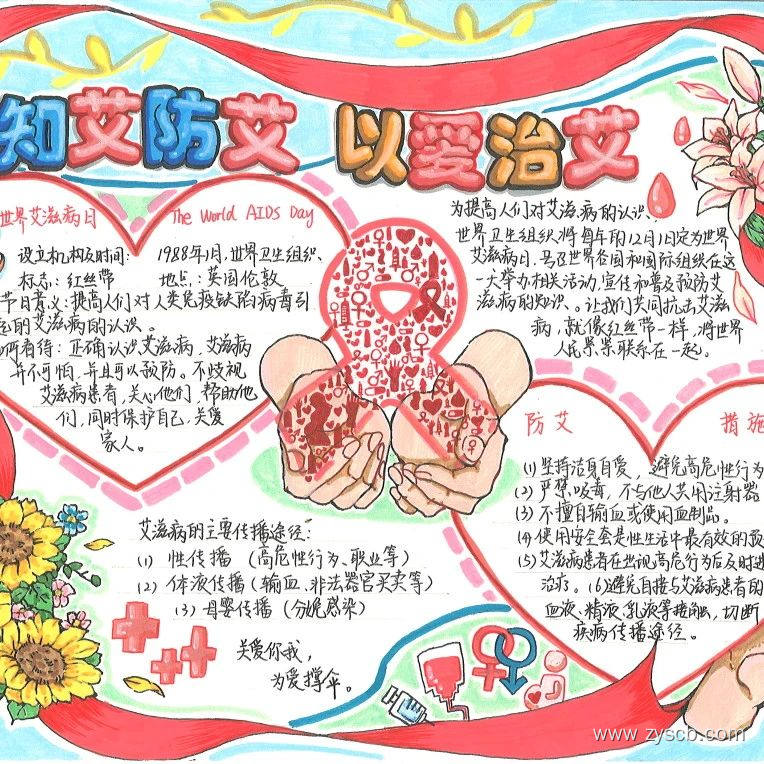 知艾防艾 以爱治艾
世界艾滋病日 The World AIDS Day
设立机构及时间: 1988年1月,世界卫生组织、
标志:红丝带 地点:英国伦敦
节日意义:提高人们对人类免疫缺陷病毒引
的艾滋病的认识。
看待:正确认识艾滋病,艾滋病
并不可怕,并且可以预防。不歧视
艾滋病患者,关心他们,帮助他
们,同时保护自己,关爱
家人。
为提高人们对艾滋病的认识、
世界卫生组织将每年的12月1日定为世界
艾滋病日,号召世界各国和国际组织在这
一天举办相关活动,宣传和普及预防艾
滋病的知识、。让我们共同抗击艾滋
病,就像红丝带一样,将世界
人民紧紧联系在一起。
防艾 措施
(1) 坚持洁身自爱,避免高危性行为
(2) 严禁吸毒,不与他人共用注射器
(3) 不擅自输血或使用血制品。
(4) 使用安全套是性生活中最有效的预
(5) 艾滋病患者在出现高危行为后及时进
治疗。(6)避免直接与艾滋病患者的
血液、精液、乳液等接触,切断
疾病传播途径。
艾滋病的主要传播途径:
(1) 性传播 (高危性行为、职业等)
(2) 体液传播 (输血、非法器官买卖等)
(3) 母婴传播 (分娩感染)
关爱你我,
为爱撑伞。
www.zyscb.com